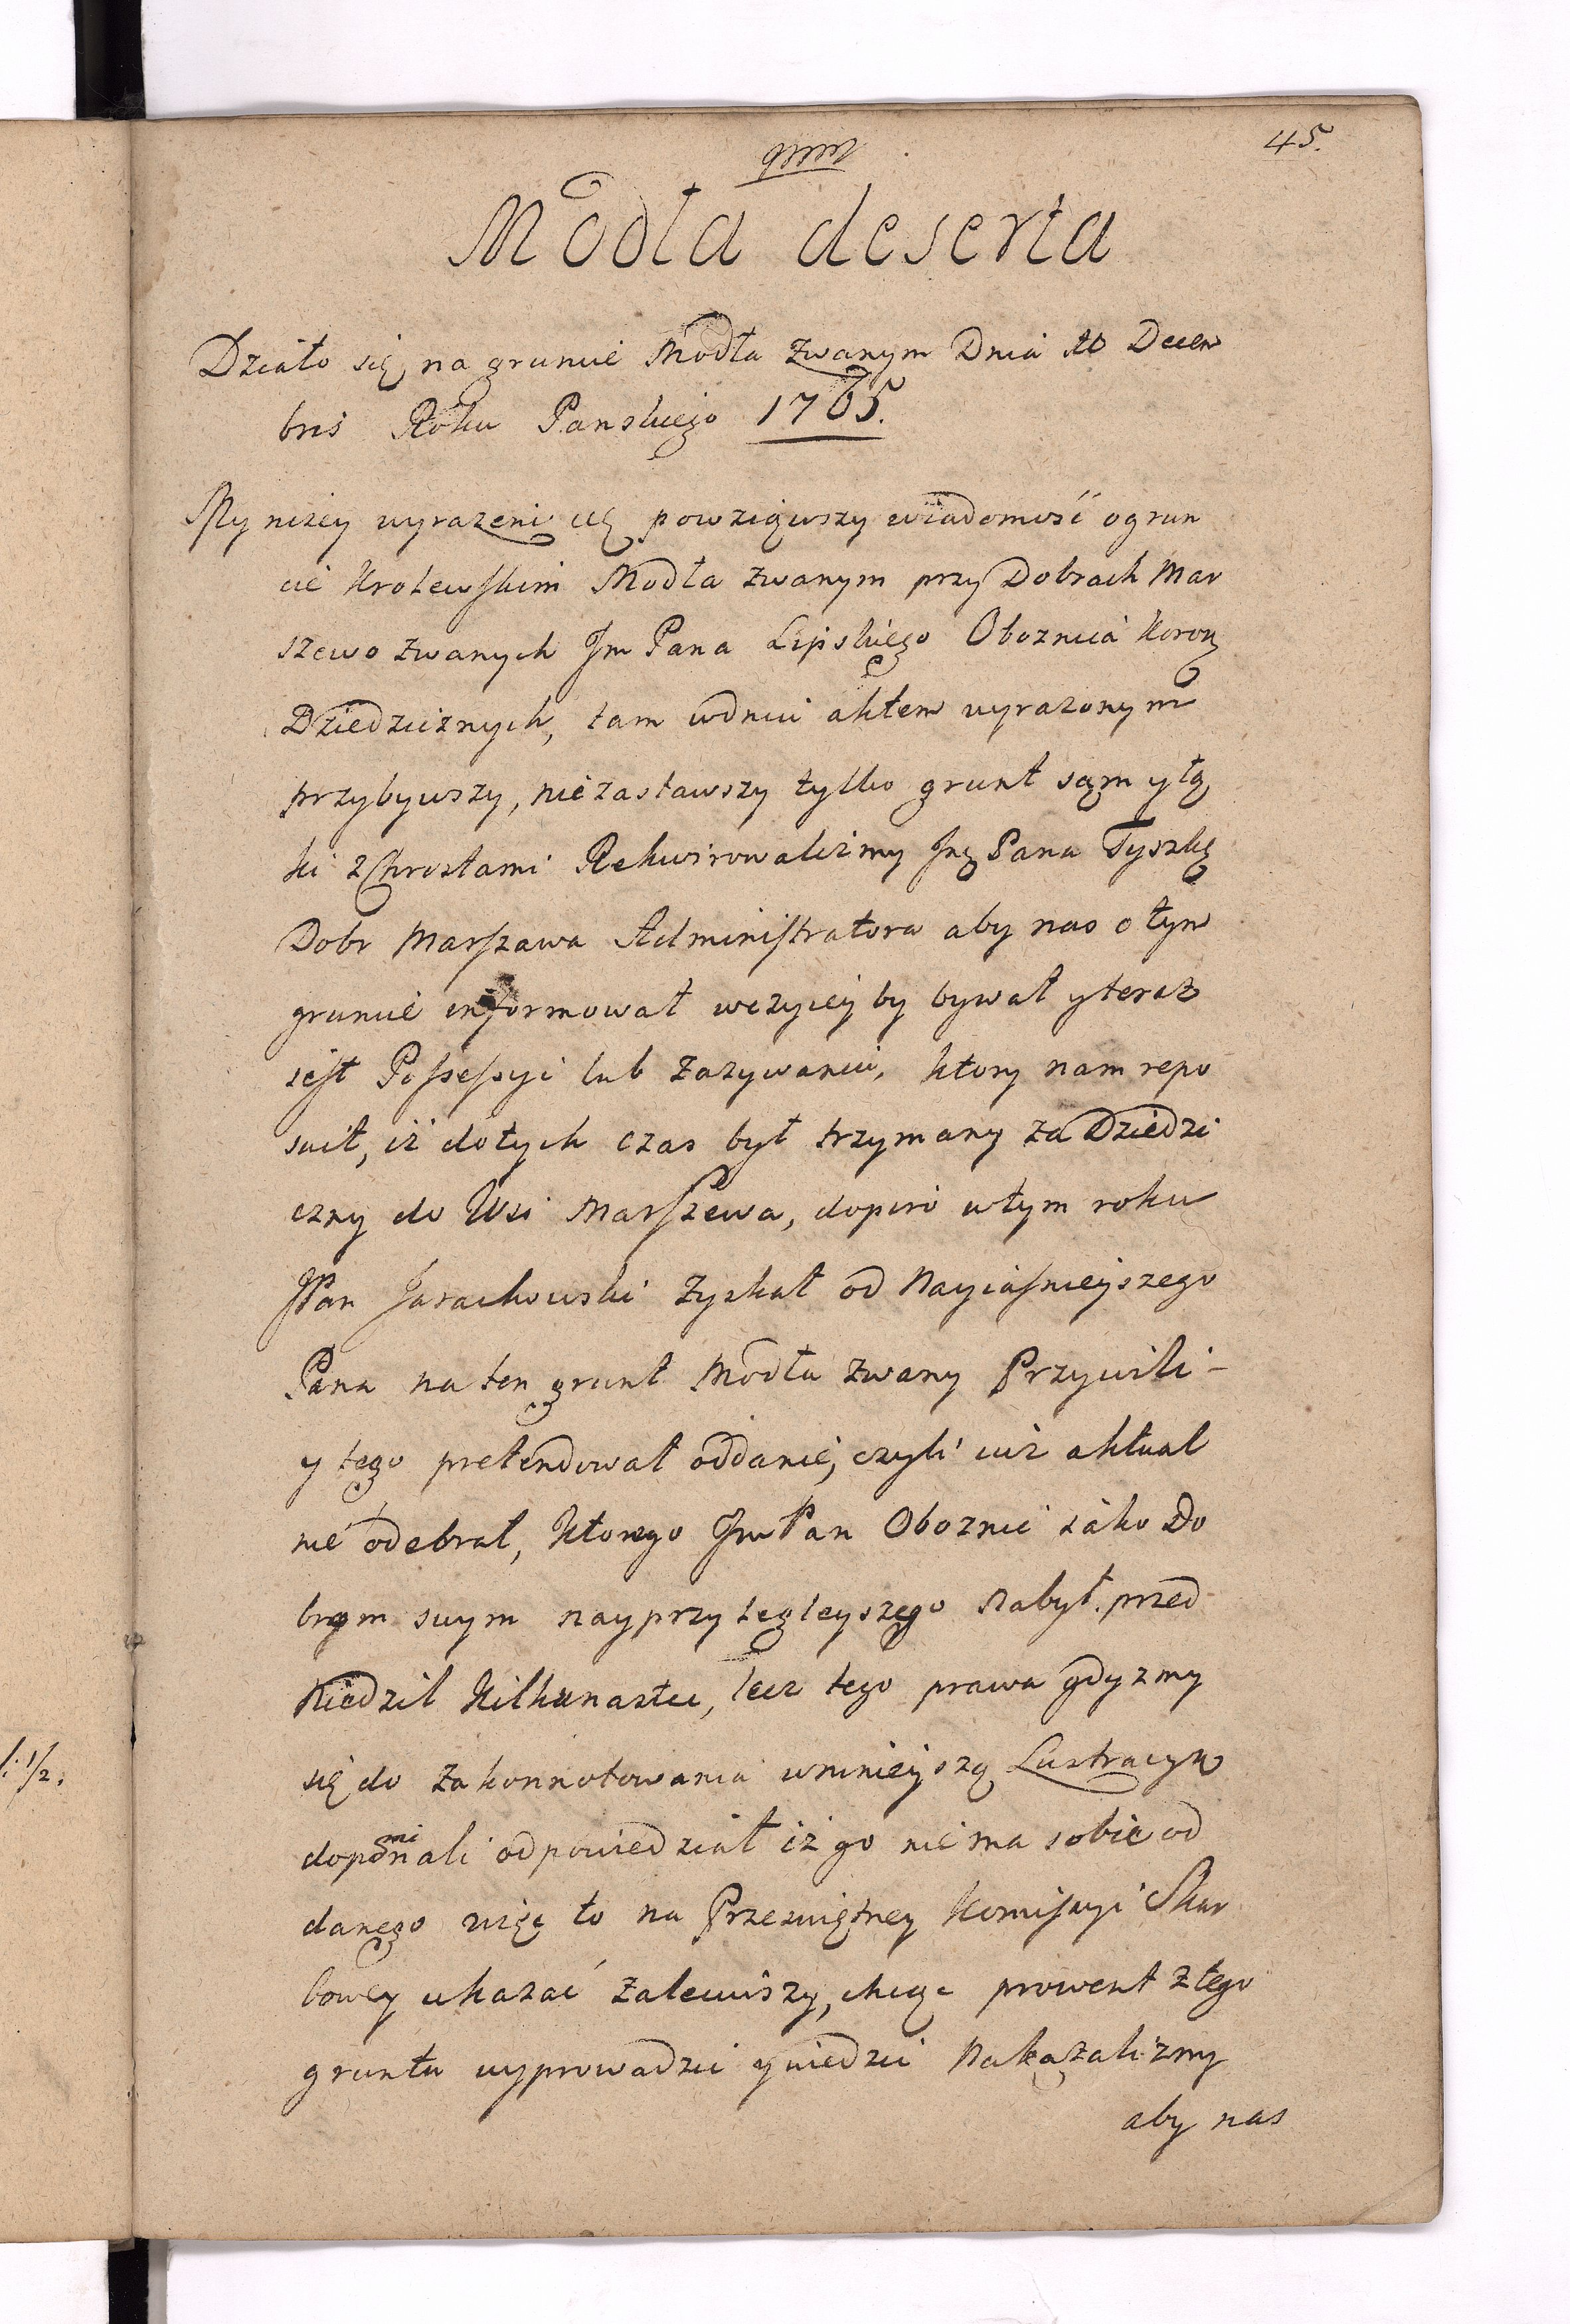 45.
Modła deserta
Działo się na gruncie Modła zwanym Dnia 10 Decem
bris Roku Panskiego 1765.
My nizey wyrazeni powziąwszy wiadomość o grun
cie Krolewskim Modła zwanym przy Dobrach Mar
szewo zwanych Jm Pana Lipskiego Oboznica Koron
Dziedzicznych, tam wdniu aktem wyrazonym
przybywszy, nie zastawszy tylko grunt sąm y łą
ki z Chrostami Rekwirowalismy Pana Tyszkę
Dobr Marszawa Administratora aby nas o tym
gruncie informował wczyiey by bywał y teraz
iest Possessyi lub zazywaniu, ktory nam repo
suit, iż dotych czas był trzymany za Dziedzi
czny do Wsi Marszewa, dopiro wtym roku
JPan Jarachowski zyskał od Nayiasnieyszego
Pana na ten grunt Modła zwany Przywili-
y tego pretendował oddanie, czyli iuż aktual
nie odebrał, ktorego Jm Pan Oboznic iako Do
brom swym nayprzyległeyszego nabył przed
Niedzil Kilkunastu, lecz tego prawa gdyzmy
się do zakonnotowania wninieyszą Lustracyą
dopominali odpowiedział iż go nie ma sobie od
danego więc to na Przeswiętney Komissyi Skar
bowey ukazać zaleciwszy, chcąc prowent z tego
gruntu wyprowadzić y wiedzić Nakazalizmy
aby nas
l: 1/2.